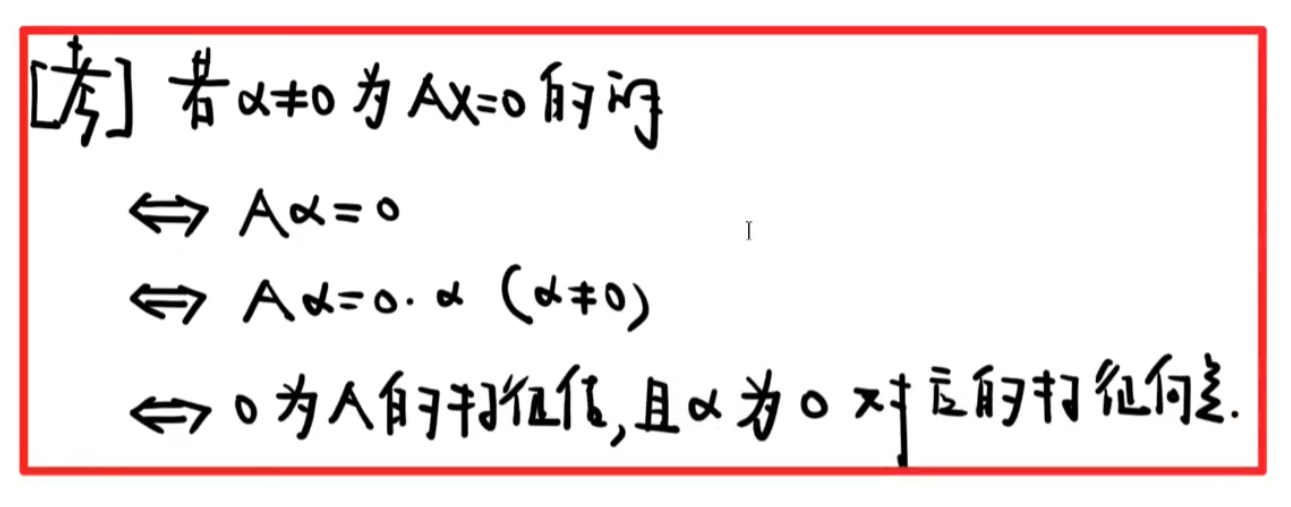 [考] 若α≠0为AX=0的解
⇔ Aα=0
⇔ Aα=0·α (α≠0)
⇔ 0为A的特征值,且α为0对应的特征向量.